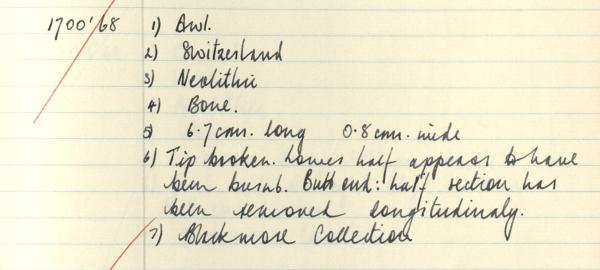 1700'68 1) Awl.
2) Switzerland
3) Neolithic
4) Bone.
5) 6.7 cms. long 0.8 cms. wide
6) Tip broken. Lower half appears to have
been burnt. Butt end: half section has
been removed longitudinaly.
7) Blackmore Collection